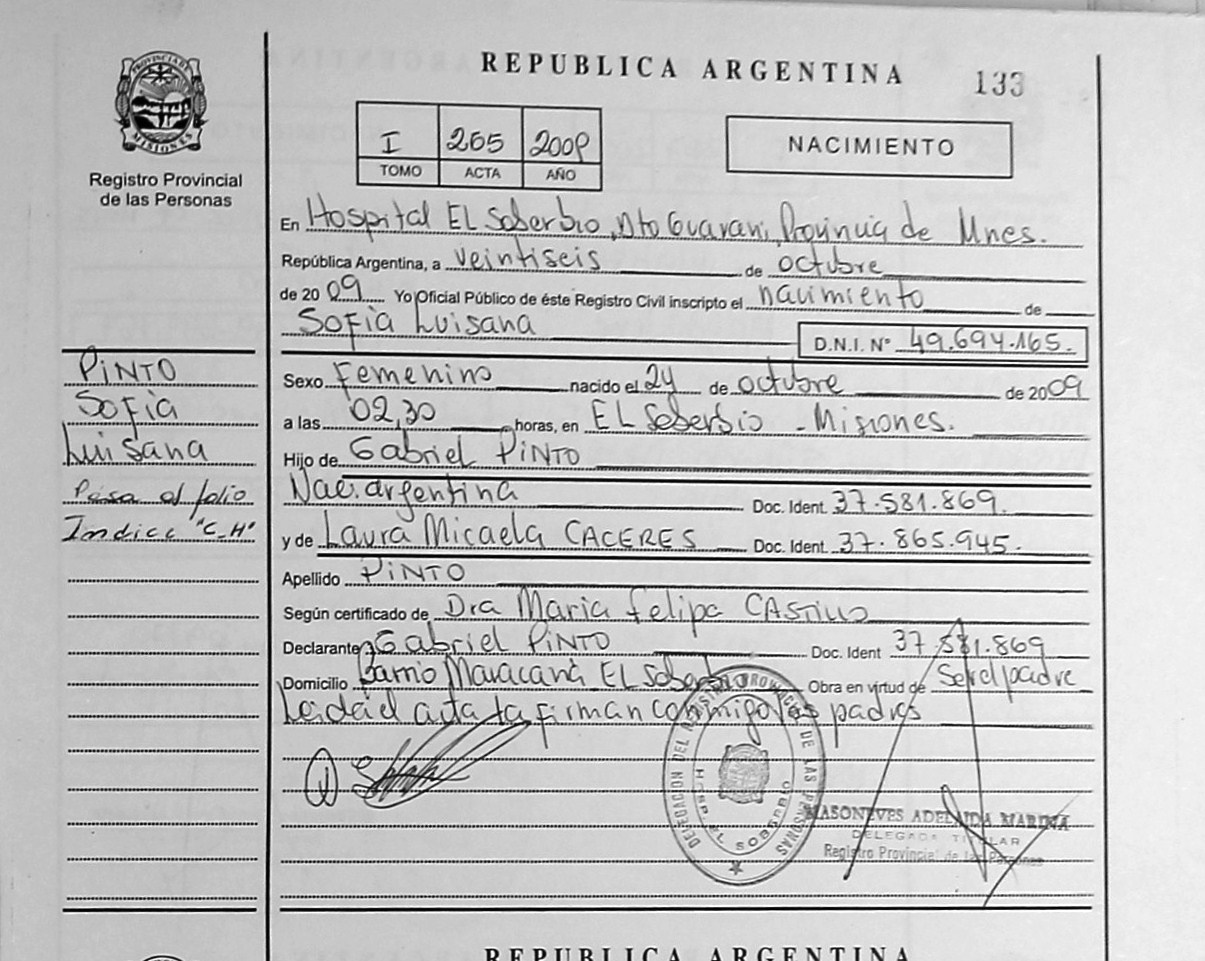 REPUBLICA ARGENTINA
133
PROVINCIA DE MISIONES
Registro Provincial
de las Personas
I 265 2009
TOMO ACTA AÑO
NACIMIENTO
En Hospital El Soberbio, Dto Guarani, Provincia de Mnes.
República Argentina, a veintiseis de octubre
de 2009 Yo Oficial Público de éste Registro Civil inscripto el nacimiento de
Sofia Luisana D.N.I. Nº 49.694.165.
PINTO
Sofia
Luisana
Pasa al folio
Indice "C-H"
Sexo Femenino nacido el 24 de octubre de 2009
a las 02,30 horas, en EL Soberbio - Misiones.
Hijo de Gabriel PINTO
Nac. argentina Doc. Ident. 37.581.869.
y de Laura Micaela CACERES Doc. Ident. 37.865.945.
Apellido PINTO
Según certificado de Dra Maria Felipa CASTILLO
Declarante Gabriel PINTO Doc. Ident 37.581.869
Domicilio Barrio Maracaná EL Soberbio Obra en virtud de Ser el padre
Leida el acta la firman conmigo los padres
DELEGACION DEL REGISTRO PROVINCIAL DE LAS PERSONAS
HOSP. EL SOBERBIO
MASONEVES ADELAIDA MARINA
DELEGADA TITULAR
Registro Provincial de las Personas
REPUBLICA ARGENTINA